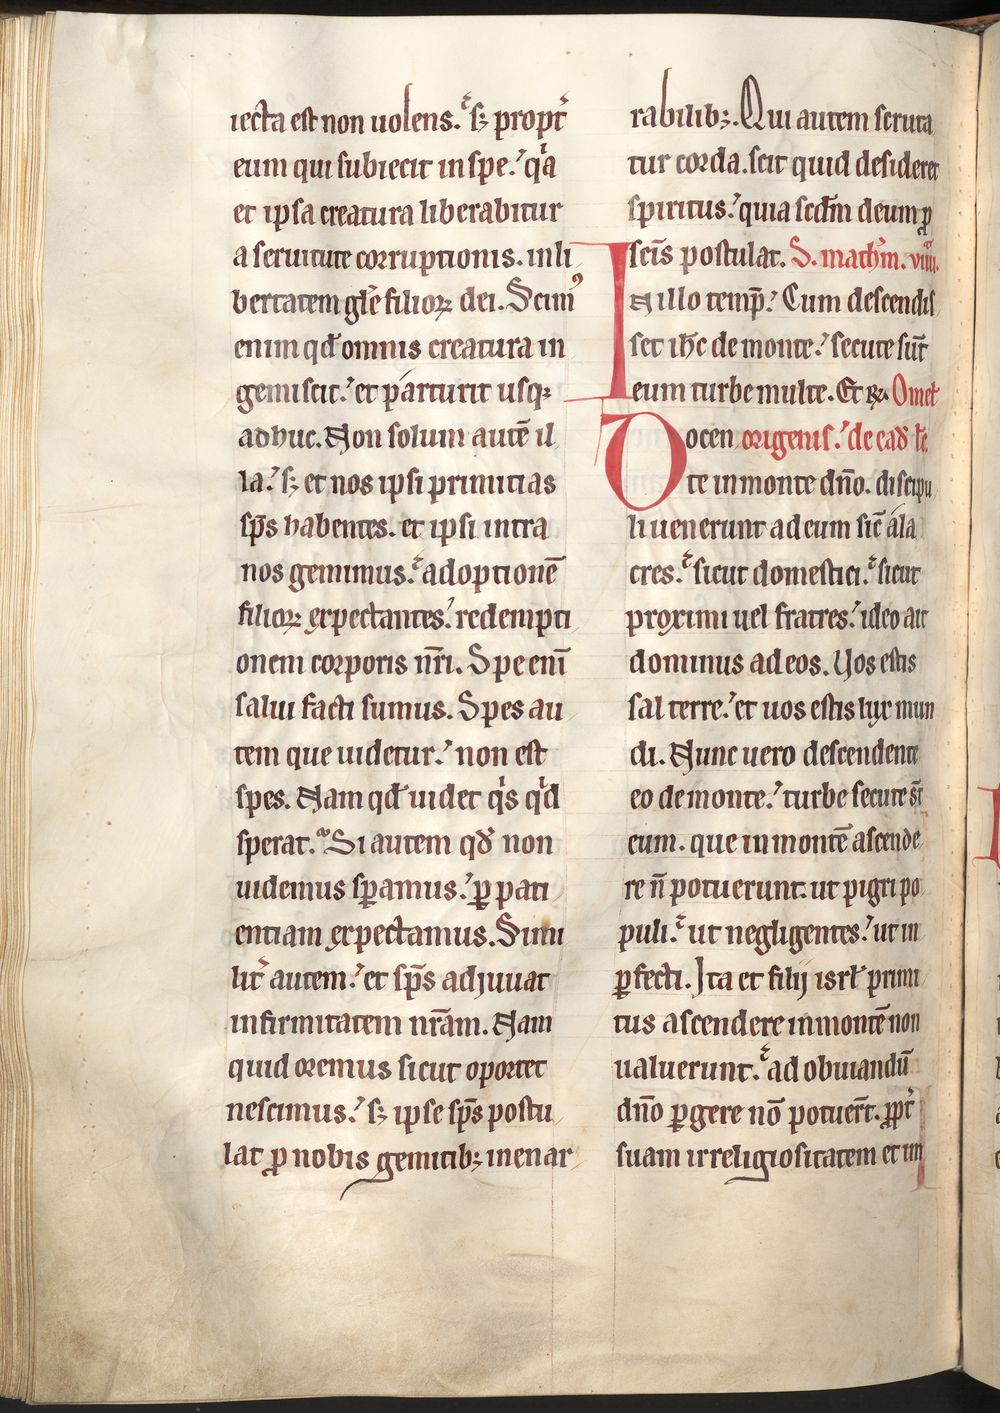 iecta est non uolens. sꝫ propt̉
eum qui subiecit in spe. qͥa
et ipsa creatura liberabitur
a seruitute corruptionis. in li
bertatem gl̄e filioꝝ dei. Scimꝰ
enim qđ omnis creatura in
gemiscit. et parturit usqꝫ
adhuc. Non solum autē il
la. sꝫ et nos ipsi primitias
sp̄s habentes. et ipsi intra
nos gemimus. adoptionē
filioꝝ expectantes. redempti
onem corporis nr̄i. Spe enī
salui facti sumus. Spes au
tem que uidetur. non est
spes. Nam qđ uidet qͥs qͥd
sperat. Si autem qđ non
uidemus sꝑamus. ꝑ pati
entiam expectamus. Simi
lit̉ autem. et sp̄s adjuuat
infirmitatem nr̄am. Nam
quid oremus sicut oportet
nescimus. sꝫ ipse sp̄s postu
lat ꝓ nobis gemitibꝫ inenar
rabilibꝫ. Qui autem scruta
tur corda. scit quid desideret
spiritus. quia scđm deum ꝓ
sc̄is postulat. S. math̉m. viiii.
In illo temp̄. Cum descendis
set ih̄c de monte. secute sūt
eum turbe multe. Et rꝶ. Omel
Docen origenis. de eađ lc̄
te in monte dn̄o. discipu
li uenerunt ad eum sic̄ ala
cres. sicut domestici. sicut
proximi uel fratres. ideo ait
dominus ad eos. Uos estis
sal terre. et uos estis lux mun
di. Nunc uero descendente
eo de monte. turbe secute st̄
eum. que in montē ascende
re n̄ potuerunt. ut pigri po
puli. ut negligentes. ut in
ꝑfecti. Ita et filij isrł primi
tus ascendere in montē non
ualuerunt. ad obuiandū
dn̄o ꝑgere nō potuer̄t. ꝓpt̉
suam irreligiositatem et im